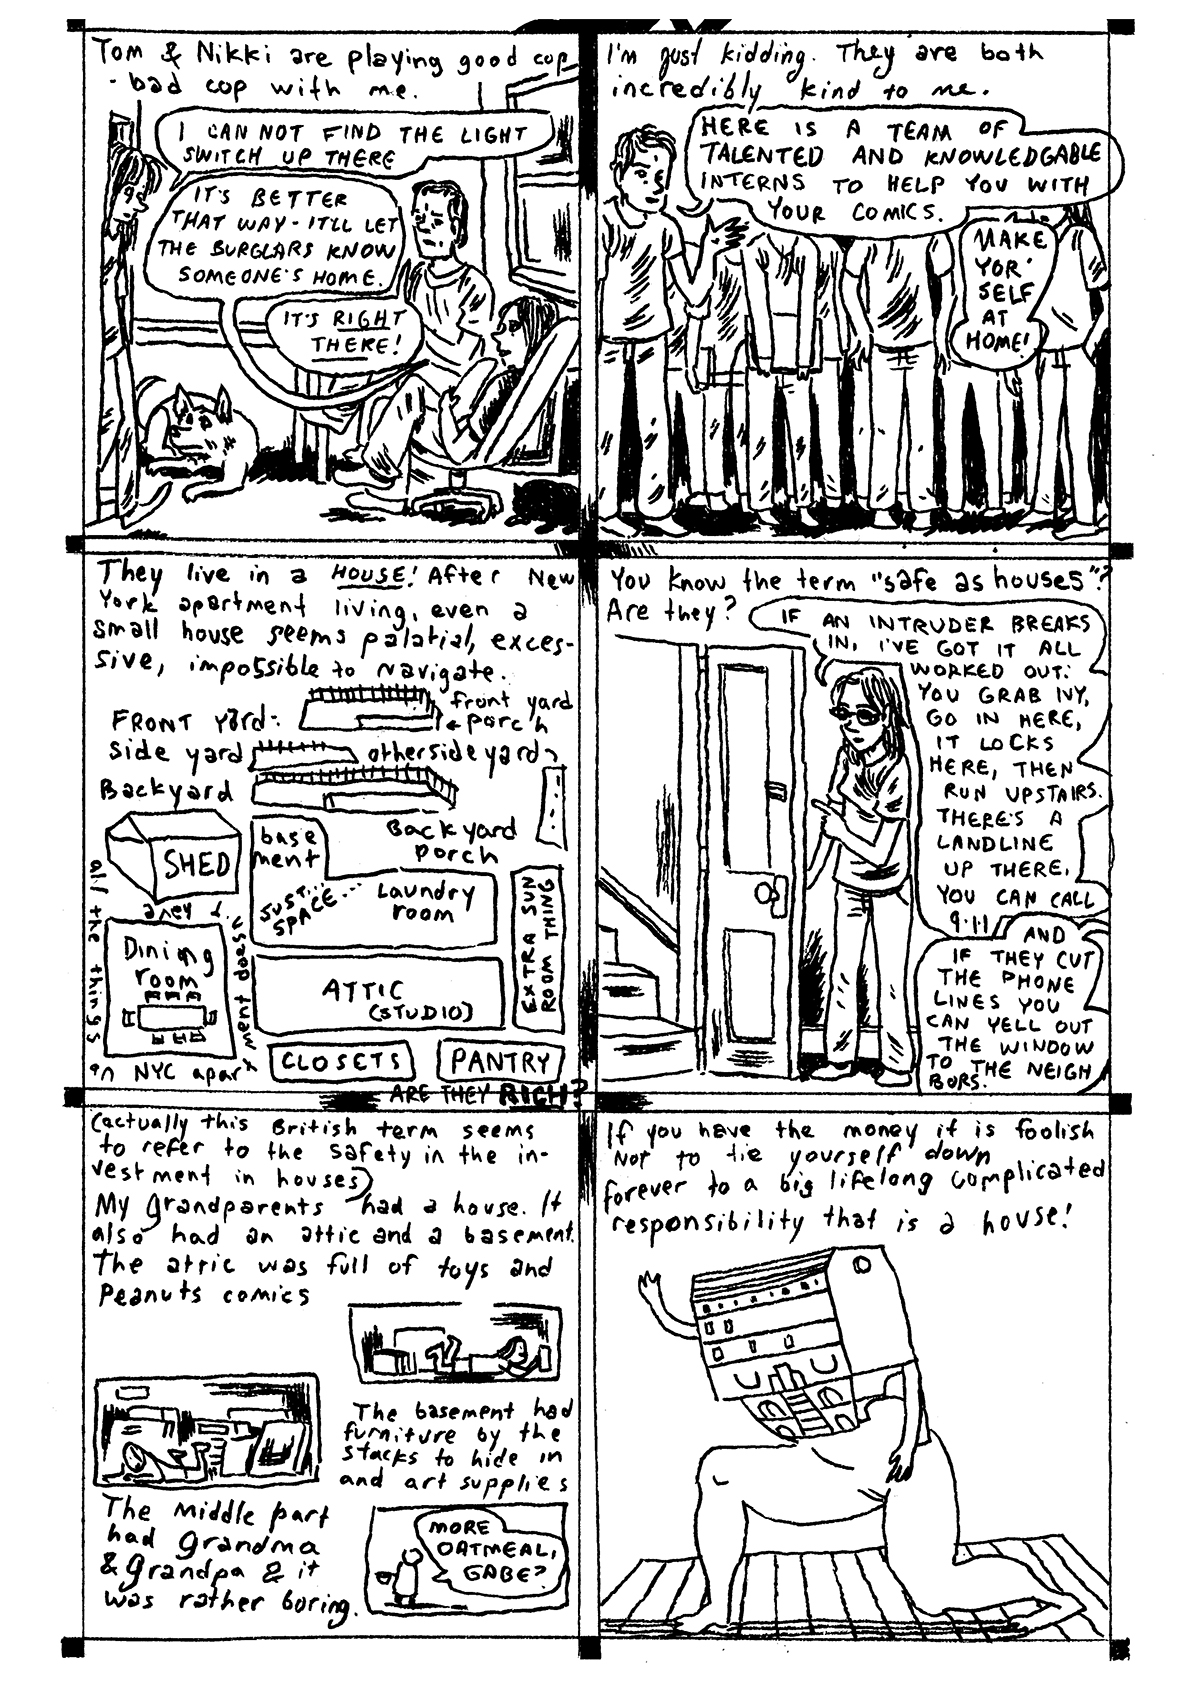 Tom & Nikki are playing good cop
- bad cop with me.
I CAN NOT FIND THE LIGHT
SWITCH UP THERE
IT'S BETTER
THAT WAY - IT'LL LET
THE BURGLARS KNOW
SOMEONE'S HOME.
IT'S RIGHT
THERE!
I'm just kidding. They are both
incredibly kind to me.
HERE IS A TEAM OF
TALENTED AND KNOWLEDGABLE
INTERNS TO HELP YOU WITH
YOUR COMICS.
MAKE
YOR'
SELF
AT
HOME!
They live in a HOUSE! After New
York apartment living, even a
small house seems palatial, exces-
sive, impossible to navigate.
FRONT Yard:
front yard
porch
side yard
other side yard
Backyard
SHED
base
ment
Backyard
porch
JUST...
SPACE...
Laundry
room
EXTRA SUN
ROOM THING
Dining
room
ATTIC
(STUDIO)
CLOSETS
PANTRY
all the things
an NYC apart
ment doesn't
have
ARE THEY RICH?
You know the term "safe as houses"?
Are they?
IF AN INTRUDER BREAKS
IN, I'VE GOT IT ALL
WORKED OUT:
YOU GRAB IVY,
GO IN HERE,
IT LOCKS
HERE, THEN
RUN UPSTAIRS.
THERE'S A
LANDLINE
UP THERE,
YOU CAN CALL
9·11
AND
IF THEY CUT
THE PHONE
LINES YOU
CAN YELL OUT
THE WINDOW
TO THE NEIGH
BORS.
(actually this British term seems
to refer to the safety in the in-
vestment in houses)
My grandparents had a house. It
also had an attic and a basement.
The attic was full of toys and
Peanuts comics
The basement had
furniture by the
stacks to hide in
and art supplies
The middle part
had Grandma
& Grandpa & it
was rather boring.
MORE
OATMEAL,
GABE?
If you have the money it is foolish
Not to tie yourself down
forever to a big lifelong complicated
responsibility that is a house!